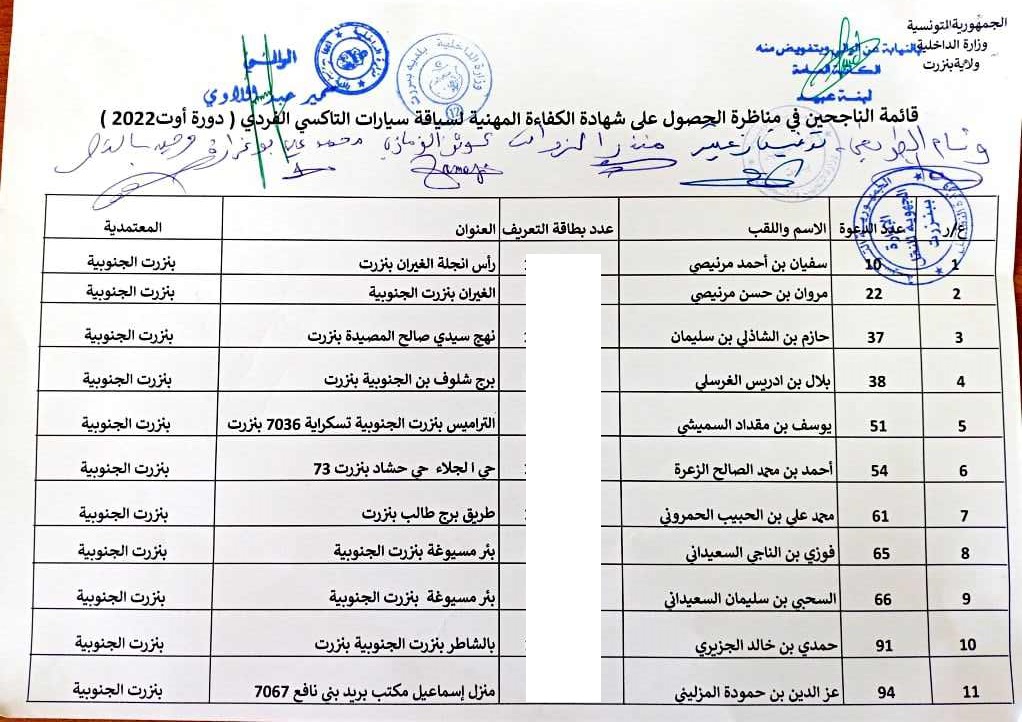 الجمهورية التونسية
وزارة الداخلية
ولاية بنزرت
بالنيابة عن الوالي وبتفويض منه
الكاتبة العامة
لبنة عبيد
الوالي
سمير عبد اللاوي
قائمة الناجحين في مناظرة الحصول على شهادة الكفاءة المهنية لسياقة سيارات التاكسي الفردي ( دورة أوت2022 )
ع/ر عدد الدعوة الاسم واللقب عدد بطاقة التعريف العنوان المعتمدية
1 10 سفيان بن أحمد مرنيصي رأس انجلة الغيران بنزرت بنزرت الجنوبية
2 22 مروان بن حسن مرنيصي الغيران بنزرت الجنوبية بنزرت الجنوبية
3 37 حازم بن الشاذلي بن سليمان نهج سيدي صالح المصيدة بنزرت بنزرت الجنوبية
4 38 بلال بن ادريس الغرسلي برج شلوف بن الجنوبية بنزرت بنزرت الجنوبية
5 51 يوسف بن مقداد السميشي التراميس بنزرت الجنوبية تسكراية 7036 بنزرت بنزرت الجنوبية
6 54 أحمد بن محمد الصالح الزعرة حي الجلاء حي حشاد بنزرت 73 بنزرت الجنوبية
7 61 محمد علي بن الحبيب الحمروني طريق برج طالب بنزرت بنزرت الجنوبية
8 65 فوزي بن الناجي السعيداني بئر مسيوغة بنزرت الجنوبية بنزرت الجنوبية
9 66 السحبي بن سليمان السعيداني بئر مسيوغة بنزرت الجنوبية بنزرت الجنوبية
10 91 حمدي بن خالد الجزيري بالشاطر بنزرت الجنوبية بنزرت بنزرت الجنوبية
11 94 عز الدين بن حمودة المزليني منزل إسماعيل مكتب بريد بني نافع 7067 بنزرت الجنوبية